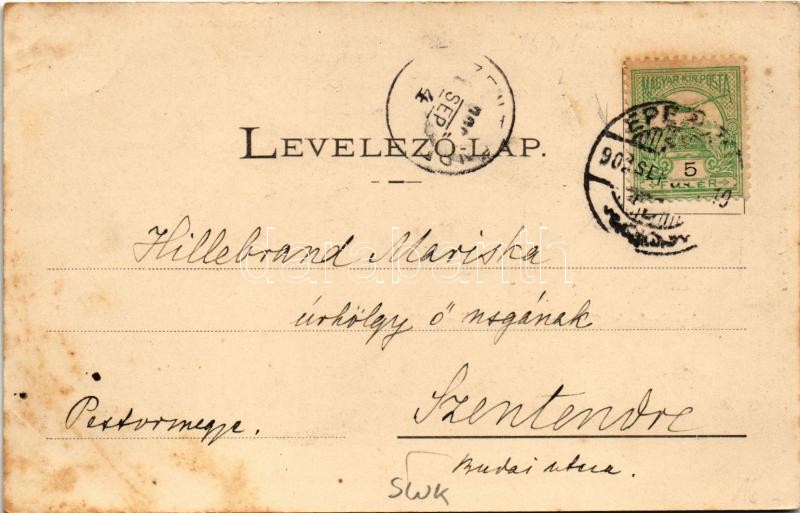 MAGYAR KIR. POSTA
5
FILLÉR
902 SEP
SEP 4
LEVELEZŐ-LAP.
Hillebrand Mariska
darabanth
úrhölgy ő nsgának
Szentendre
Pestvármegye.
Budai utca.
SWK